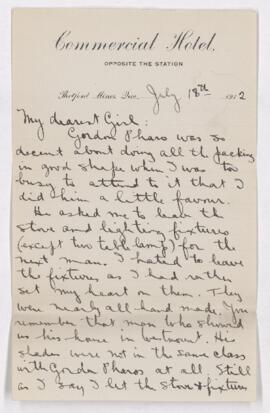 Commercial Hotel,
OPPOSITE THE STATION
Thetford Mines, Que., July 18th 1912
My dearest Girl:
Gordon Pharo was so
decent about doing all the packing
in good shape when I was too
busy to attend to it that I
did him a little favour.
He asked me to leave the
stove and lighting fixtures
(except two table lamps) for the
next man. I hated to leave
the fixtures as I had rather
set my heart on them. They
were nearly all hand made. You
remember that man who showed
us his house in Westmount. His
shades were not in the same class
with Gordon Pharos at all. Still
as I say I let the stove & fixtures